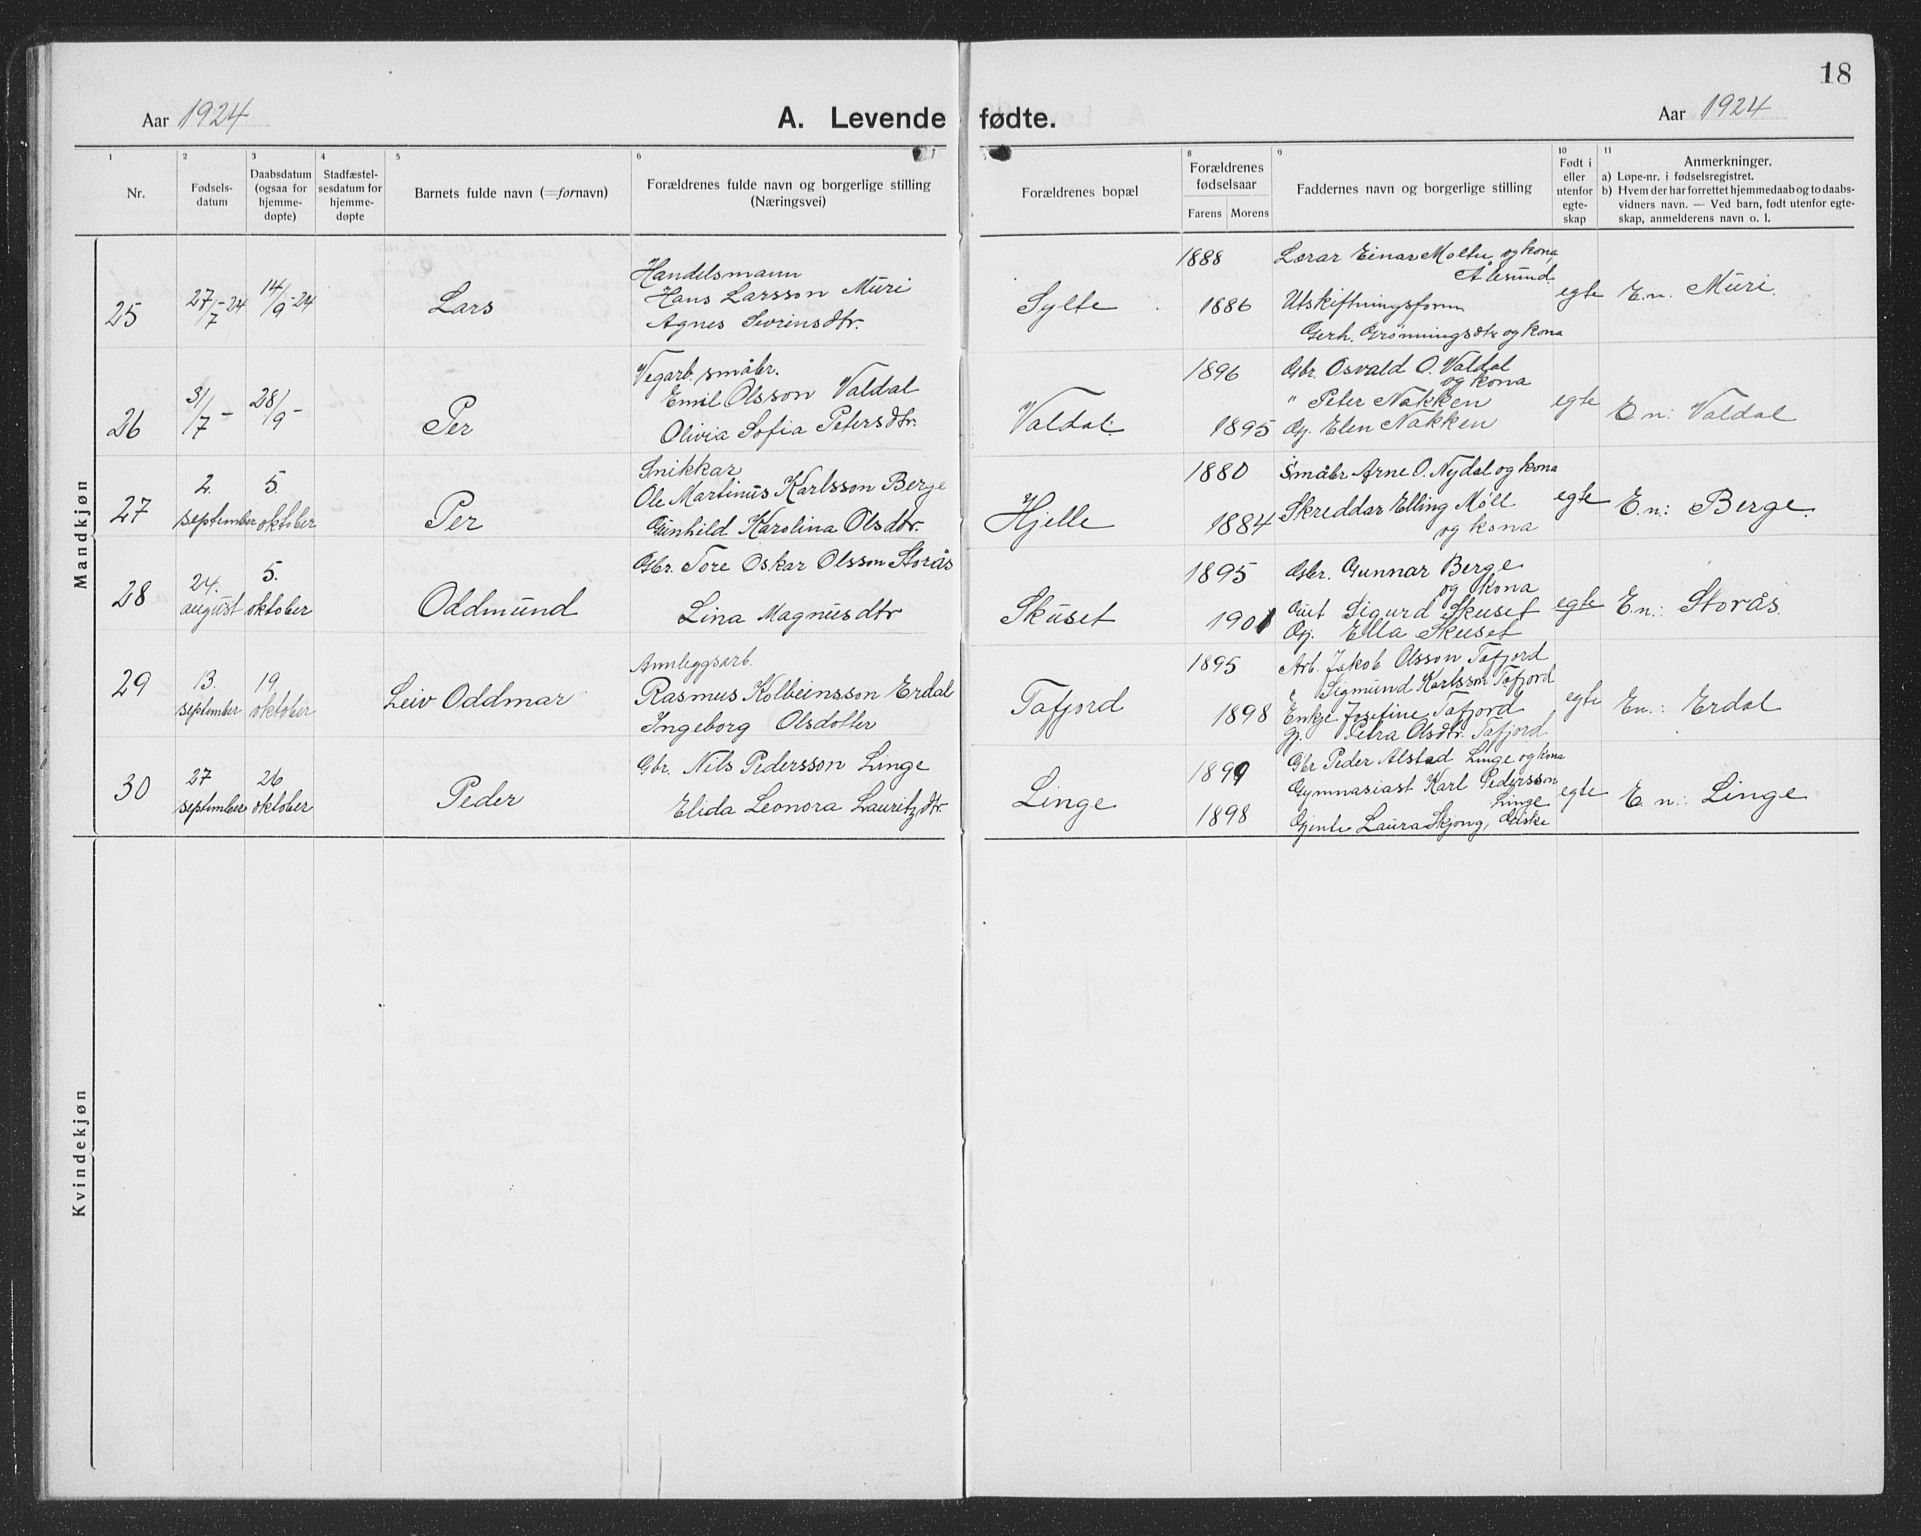 18
Aar 1924
A. Levende fødte.
Aar 1924
1 2 3 4 5 6 8 9 10 11
Nr.
Fødsels-
datum
Daabsdatum
(ogsaa for
hjemme-
døpte)
Stadfæstel-
sesdatum for
hjemme-
døpte
Barnets fulde navn (=fornavn)
Forældrenes fulde navn og borgerlige stilling
(Næringsvei)
Forældrenes bopæl
Forældrenes
fødselsaar
Farens Morens
Faddernes navn og borgerlige stilling
Født i
eller
utenfor
egte-
skap
Anmerkninger.
a) Løpe-nr. i fødselsregistret.
b) Hvem der har forrettet hjemmedaab og to daabs-
vidners navn. — Ved barn, født utenfor egte-
skap, anmelderens navn o. l.
Mandkjøn
25 27/7-24 14/9-24 Lars
Handelsmann
Hans Larsson Muri
Agnes Sivrinsdtr.
Sylte
1888
1886
Lærar Einar Moltu og kona,
Ålesund.
Utskiftningsform
Gerh. Grønningsdtr og kona
egte E. n. Muri.
26 31/7 - 28/9 - Per
Vegarb. småbr.
Emil Olsson Valdal
Olivia Sofia Petersdtr.
Valdal.
1896
1895
Gbr. Osvald O. Valdal
og kona
" Peter Nakken
Gj. Elen Nakken
egte E n: Valdal
27 2. september 5. oktober Per
Snikkar
Ole Martinus Karlsson Berge
Gunhild Karolina Olsdtr.
Hjelle
1880
1884
Småbr Arne O. Nydal og kona
Skreddar Elling Møll
og kona
egte E. n.: Berge.
28 24. august 5. oktober Oddmund
Gbr. Tore Oskar Olsson Storås
Lina Magnusdtr
Skuset
1895
1901
Gbr. Gunnar Berge
og kona
Gut Sigurd Skuset
Gj. Ella Skuset
egte E n.: Storås.
29 13. september 19 oktober Leiv Oddmar
Annleggsarb.
Rasmus Kolbeinsson Erdal
Ingeborg Olsdotter
Tafjord
1895
1898
Arb. Jakob Olsson Tafjord
Sigmund Karlsson Tafjord
Enkje Josefine Tafjord
Gj. Petra Olsdtr. Tafjord
egte En.: Erdal
30 27 september 26 oktober Peder
Gbr. Nils Pedersson Linge
Elida Leonora Lauritzdtr.
Linge
1899
1898
Gbr Peder Alstad Linge og kona
Gymnasiast Karl Pedersson
Linge
Gjente Laura Skjong, Giske
egte E. n.: Linge
Kvindekjøn